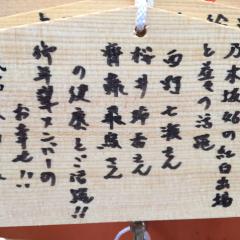 乃木坂46の紅白出場
と益々の活躍
西野七瀬さん
桜井玲香さん
齋藤飛鳥さん
の健康とご活躍!!
卒業メンバーの
お幸せ!!